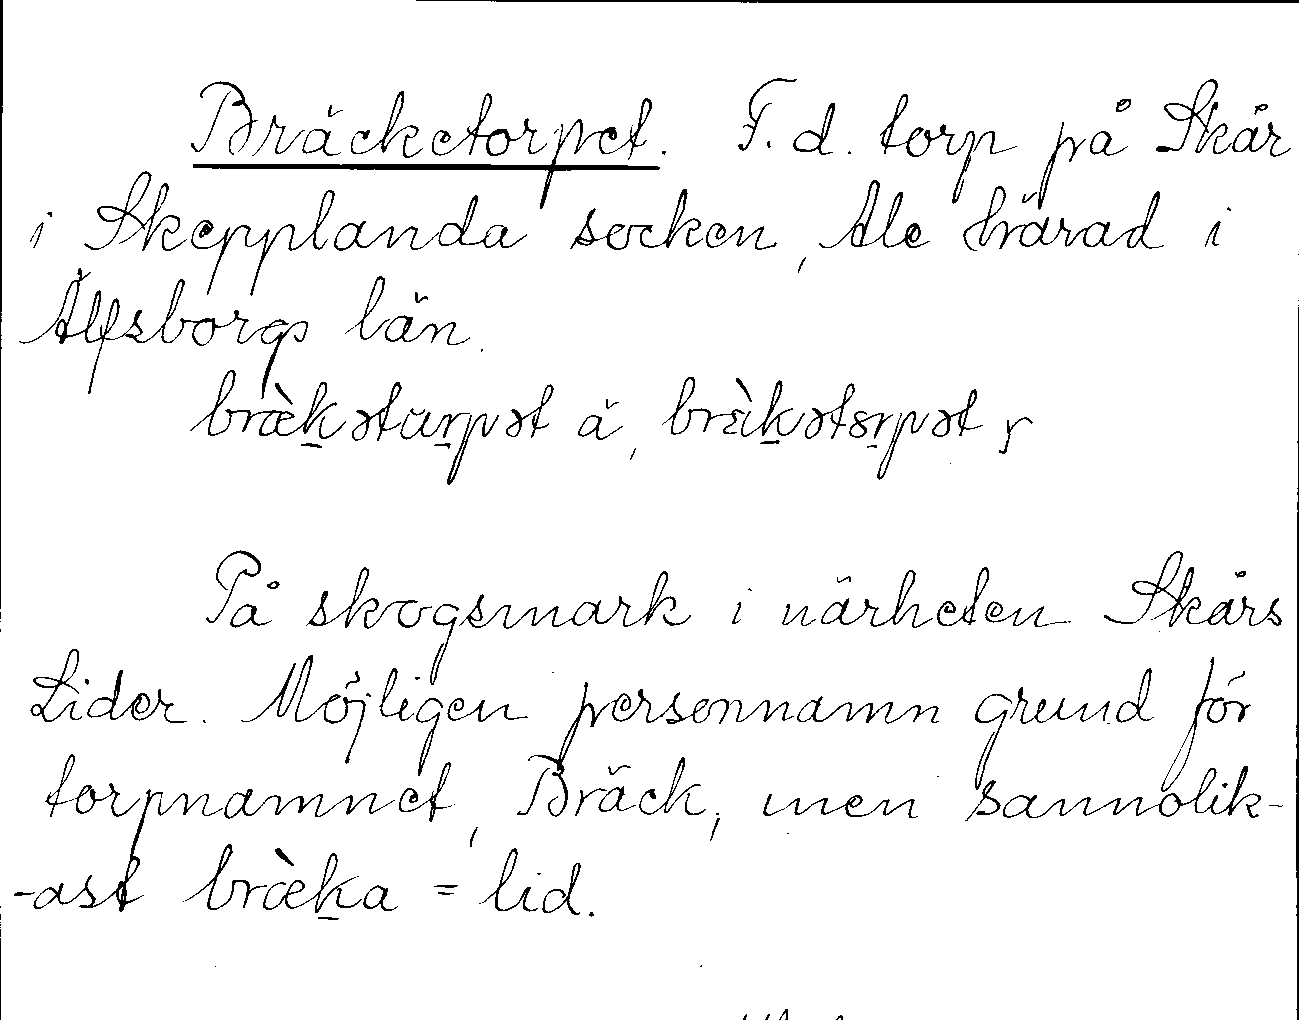 Bräcketorpet. F.d. torp på Skår
i Skepplanda socken, Ale härad i
Älfsborgs län.
bræ̀k̠ətur̠pət ä, brɛ̀k̠ətsr̠pət y
På skogsmark i närheten Skårs
Lider. Möjligen personnamn grund för
torpnamnet, Bräck, men sannolik-
-ast bræ̀k̠a = lid.